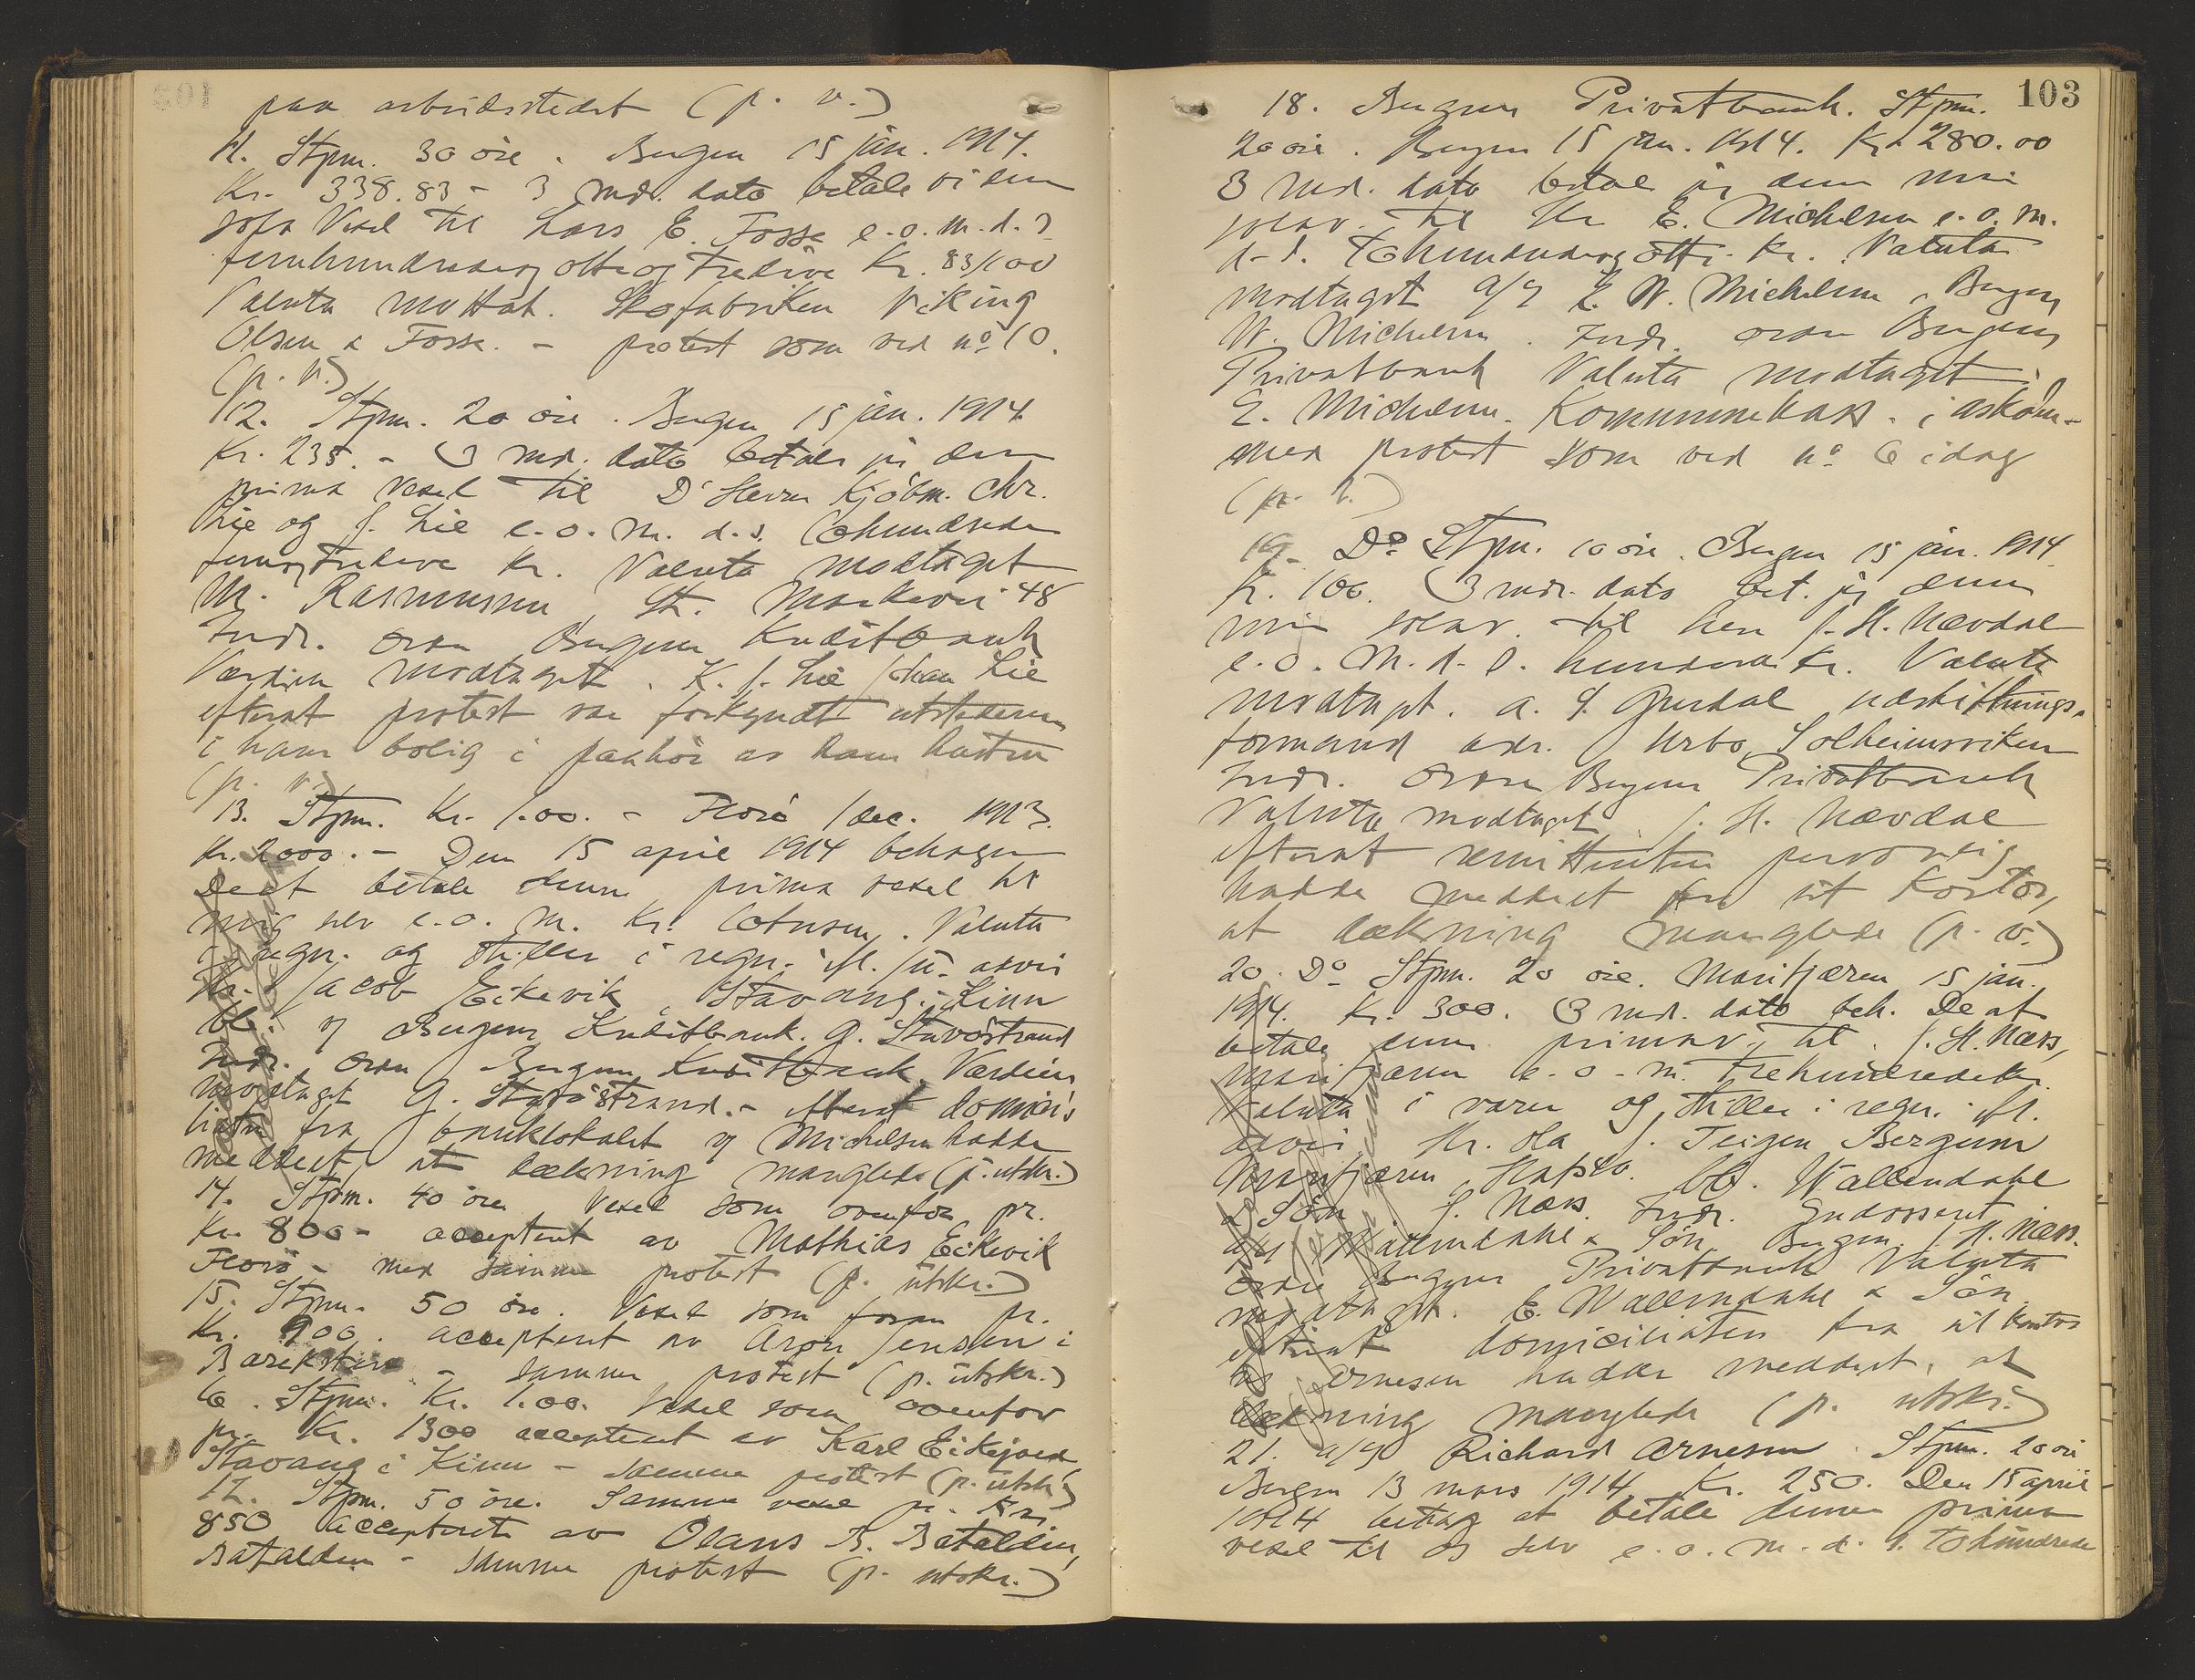 paa arbeidsstedet (p. v.)
11. Stpm. 30 öre. Bergen 15 jan. 1914.
Kr. 338.83 - 3 mdr. dato betale vi denne
sola Vexel til Lars E. Fosse e. o. m. d. s.
trehundredeog otteog tredive Kr. 83/100
Valuta mottat. Skofabriken Viking
Olsen & Fosse. - protest som ved no 10.
(p. v.)
12. Stpm. 20 öre. Bergen 15 jan. 1914
Kr. 235.- 3 mdr. dato betaler jeg denne
prima Vexel til D'Herrer Kjöbm. Chr.
Lie og J. Lie e. o. m. d. s. Tohundrede
femogtredeve Kr. Valuta modtaget
M. Rasmussen St. Markevei 48
Indr. ordre Bergens Kreditbank
Værdien modtaget. K. J. Lie Johan Lie
efterat protest var forkyndt utstederen
i hans bolig i paahör av hans hustru
(p. v.)
13. Stpm. Kr. 1.00. - Florö 1 dec. 1913.
Kr. 2000.- Den 15 april 1914 behager
De at betale denne prima vexel til
mig selv e. o. m. Kr. Totusen. Valuta
i regn. og stilles i regn. ifl. /u. advis
Hr. Jacob Eikevik, Stavang i Kinn
bt. pr Bergens Kreditbank. G. Stavöstrand
Indr. ordre Bergens Kreditbank Værdien
modtaget G. Stavöstrand.- efterat domici-
liaten fra banklokalet v/ Michelsen hadde
meddelt, at dækning manglede (p. utskr.)
14. Stpm. 40 öre Vexel som ovenfor pr.
Kr. 800- acceptert av Mathias Eikevik
Florö - med samme protest (p. utskr.)
15. Stpm. 50 öre. Vexel som foran pr.
Kr. 900. acceptert av Aron Jensen i
Barekstein - samme protest (p. utskr.)
16. Stpm. Kr. 1.00. Vexel som ovenfor
pr. Kr. 1300 acceptert av Karl Eikejord,
Stavang i Kinn - samme protest (p. utskr.)
17. Stpm. 50 öre. Samme vexel pr. Kr.
850 acceptert av Olaus B. Batalden,
Batalden - samme protest (p. utskr.)
103
18. Bergens Privatbank. Stpm.
20 öre. Bergen 15 jan. 1914. Kr. 280.00
3 mdr. dato betaler jeg denne min
solav. til Hr E. Michelsen e. o. m.
d. s. Tohundredeog otti Kr. Valuta
modtaget E. W. Michelsen, Bergen
W. Michelsen. Indr. ordre Bergens
Privatbank Valuta modtaget
E. Michelsen. Kommunekass. i Askøen-
med protest som ved no 6 idag
(p. v.)
19. Do Stpm. 10 öre. Bergen 15 jan. 1914.
Kr. 100. 3 mdr. dato bet. jeg denne
min solav. til herr J. H. Nævdal
e. o. m. d. s. hundrede Kr. Valuta
modtaget. A. J. utskiftnings-
formand adr. Solheimsviken
Indr. Ordre Bergens Privatbank
Valuta modtaget J. H. Nævdal
efterat remittenten personlig
hadde meddelt fra sit Kontor,
at dækning manglede (p. v.)
20. Do Stpm. 20 öre. Marifjæren 15 jan.
1914. Kr. 300. 3 mdr. dato beh. De at
betale denne primav. til J. H. Næss,
Marifjæren e. o. m. Trehundrede Kr.
Valuta i varer og stilles i regn. ifl.
advis Hr. Ola J. Teigen Bergum
Marifjæren, Hafslo. bt. Wallendahl
& Søn J. Næss. Indr. Endosseret
Wallendahl & Søn Bergen. J. H. Næss.
Ordre Bergens Privatbank Valuta
modtaget. E. Wallendahl & Søn.
efterat domiciliaten fra sit Kontor
v/ Arnesen hadde meddelt, at
dækning manglede (p. utskr.)
21. Richard Arnesen. Stpm. 20 öre
Bergen 13 mars 1914 Kr. 250. Den 15 april
1914 behag at betale denne prima
vexel til os selv e. o. m. d. s. tohundrede